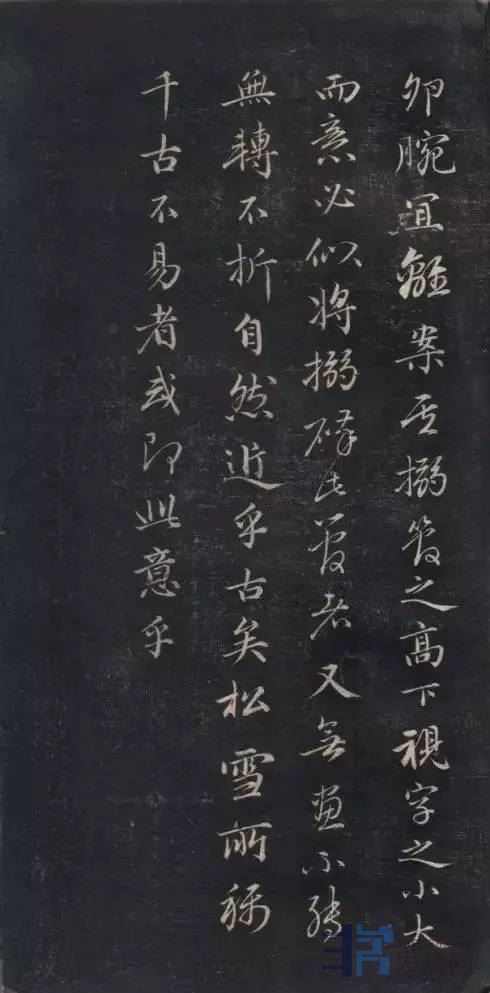 即腕宜離案其搦管之高下視字之小大
而意必似將搦碎其管者又無畫不轉
無轉不折自然近乎古矣松雪所稱
千古不易者或即此意乎